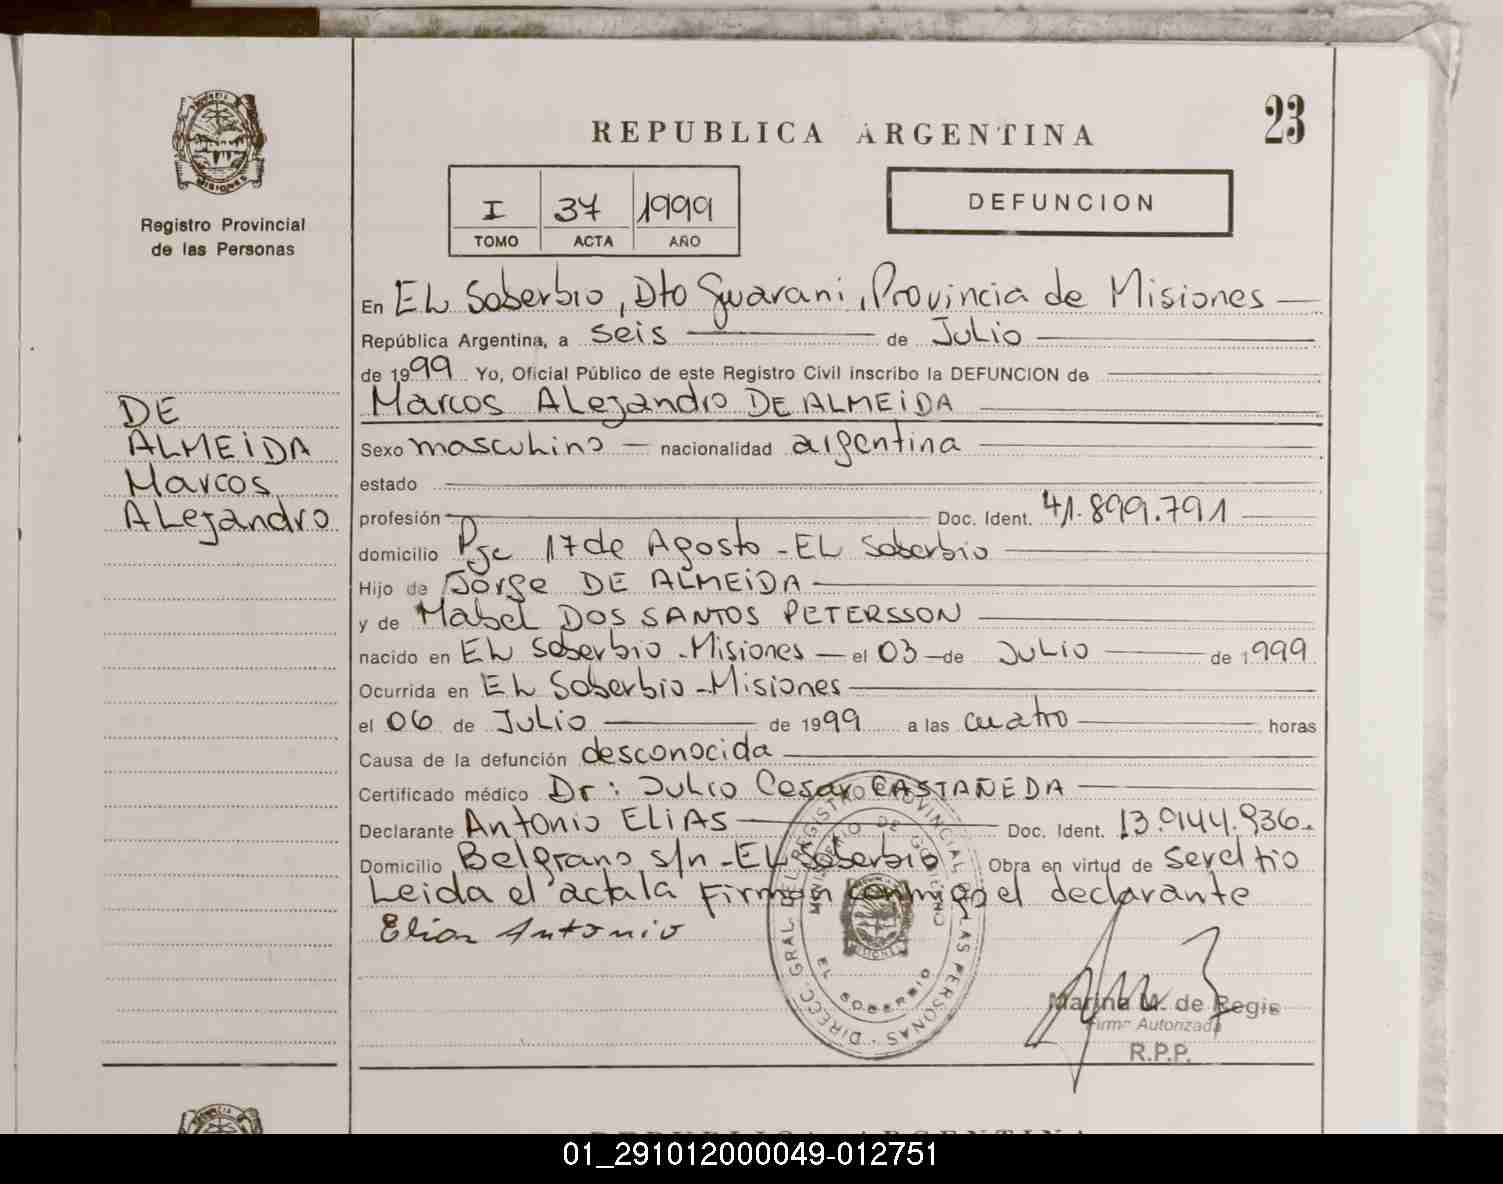 23
REPUBLICA ARGENTINA
PROVINCIA DE MISIONES
Registro Provincial
de las Personas
I 37 1999
TOMO ACTA AÑO
DEFUNCION
DE
ALMEIDA
Marcos
ALejandro
En EL Soberbio, Dto Guarani, Provincia de Misiones
República Argentina, a seis de JuLio
de 1999 Yo, Oficial Público de este Registro Civil inscribo la DEFUNCION de
Marcos ALejandro DE ALMEIDA
Sexo mascuLino nacionalidad argentina
estado
profesión Doc. Ident. 41.899.791
domicilio Pje 17 de Agosto - EL Soberbio
Hijo de Jorge DE ALMEIDA
y de MabeL DOS SANTOS PETERSSON
nacido en EL Soberbio - Misiones el 03 de JuLio de 1999
Ocurrida en EL Soberbio - Misiones
el 06 de JuLio de 1999 a las cuatro horas
Causa de la defunción desconocida
Certificado médico Dr: JuLio Cesar CASTAÑEDA
Declarante Antonio ELIAS Doc. Ident. 13.944.936.
Domicilio Belgrano s/n - EL Soberbio Obra en virtud de ser el tio
Leida el acta la Firman conmigo el declarante
Elias Antonio
DIRECC. GRAL. DEL REGISTRO PROVINCIAL DE LAS PERSONAS
MINISTERIO DE GOBIERNO
EL SOBERBIO
Marina M. de Regis
Firma Autorizada
R.P.P.
REPUBLICA ARGENTINA
01_291012000049-012751